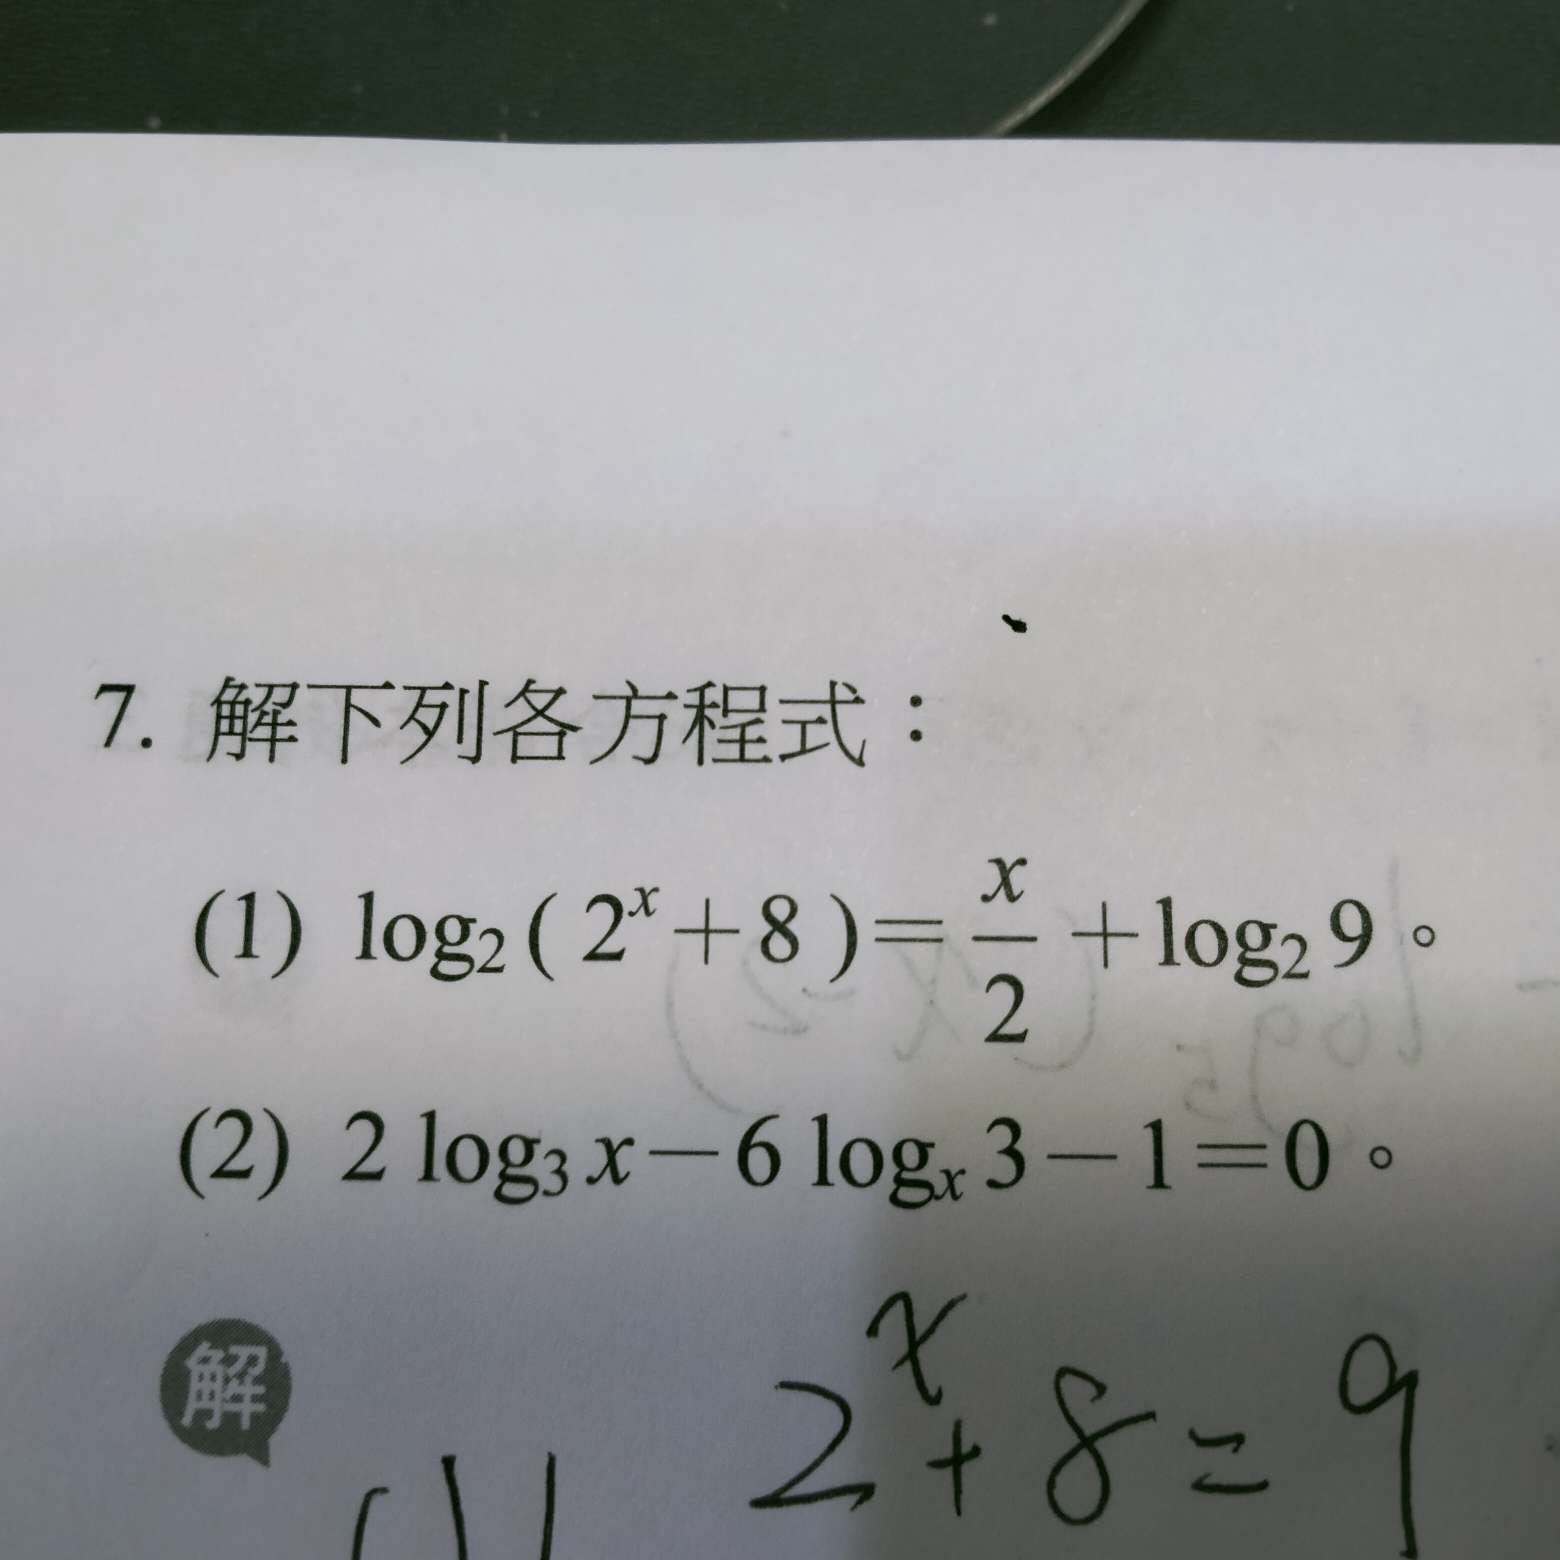 7. 解下列各方程式：
(1) log₂( 2ˣ+8 )=x/2+log₂9。
(2) 2 log₃x−6 logₓ3−1=0。
解
2ˣ+8=9